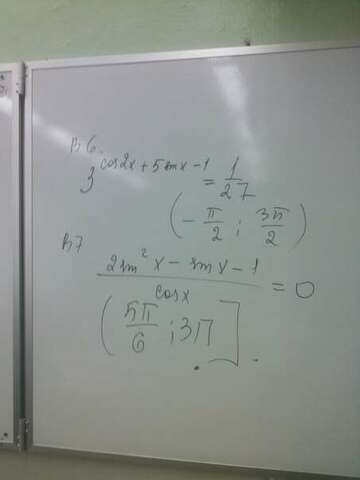 В6.
3^(cos2x + 5sinx - 1) = 1/27
(- π/2 ; 3π/2)
В7
(2sin²x - sinx - 1)/cosx = 0
(5π/6 ; 3π].